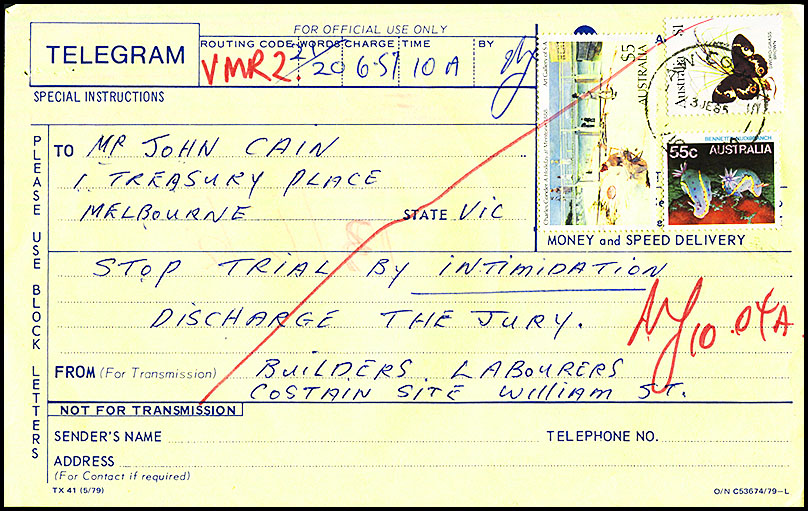 FOR OFFICIAL USE ONLY
TELEGRAM
ROUTING CODE WORDS CHARGE TIME BY
VMR2. 21/20 6-57 10 A
SPECIAL INSTRUCTIONS
PLEASE USE BLOCK LETTERS
TO MR JOHN CAIN
1 TREASURY PLACE
MELBOURNE STATE VIC
$5 AUSTRALIA
$1 Australia
3 JE 85
BENNETT'S NUDIBRANCH
55c AUSTRALIA
MONEY and SPEED DELIVERY
STOP TRIAL BY INTIMIDATION
DISCHARGE THE JURY.
10.04A
FROM (For Transmission) BUILDERS LABOURERS
COSTAIN SITE WILLIAM ST.
NOT FOR TRANSMISSION
SENDER'S NAME TELEPHONE NO.
ADDRESS
(For Contact if required)
TX 41 (5/79) O/N C53674/79-L